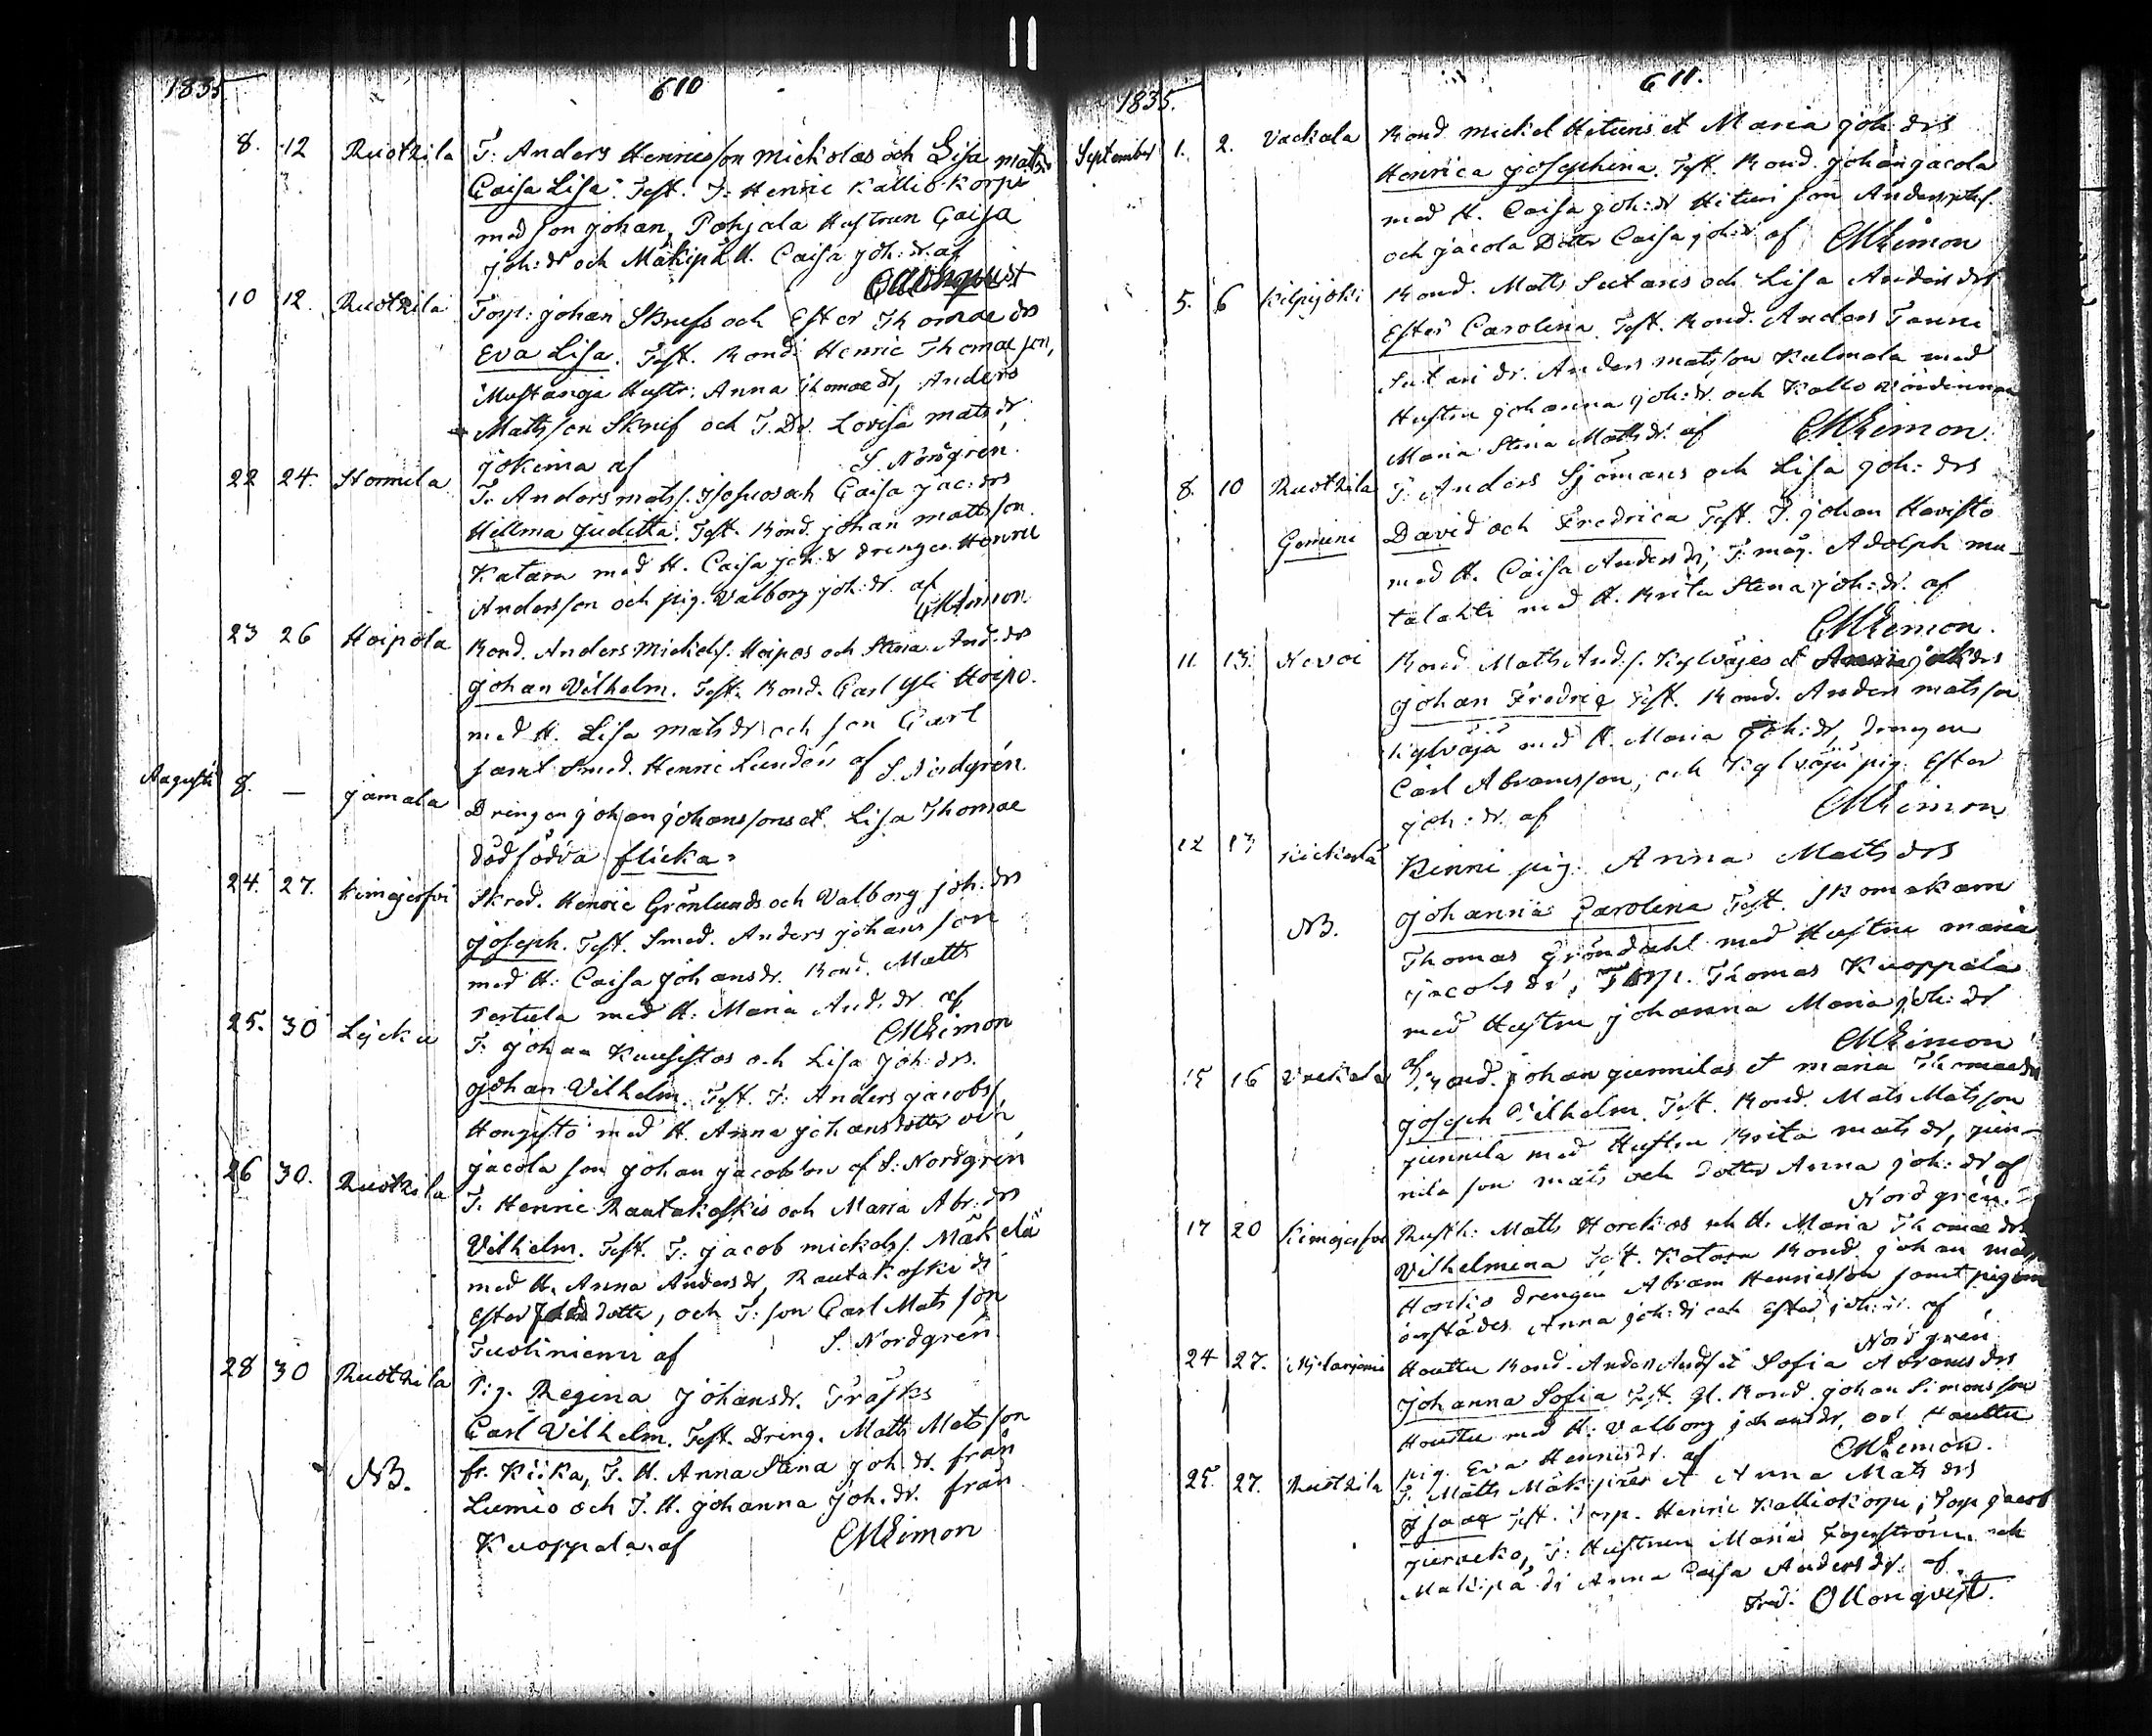 1835 610
8. 12 Ruotzila T: Anders Henricsson Mickolas och Lisa mats dr
Caisa Lisa. Test. T: Henric Kalliokorpi
med son johan, Pohjala Hustrun Caisa
joh: dr och Mäkipä H. Caisa joh: dr. af
10 12. Ruotzila Torp: johan Skrifs och Ester Thomae drs
Eva Lisa. Test. Bond: Henric Thomaeson,
Mustanoja Hustr: Anna Thomae dr, Anders
Matsson Skrif och T. Dr. Lovisa mats dr
jokima af S. Nordgrén.
22 24. Hormila T. Anders mats s. och Caisa jac: drs
Hellma juditta. Test. Bond. johan mattsson
Katara med H. Caisa joh: dr drengen Henric
Andersson och pig. Valborg joh: dr. af
CMLimon.
23 26 Hoipola Bond. Anders Mickels s. Hoipos och Stina And: drs
johan Vilhelm. Test. Bond. Carl Yli Hoipo.
med H. Lisa mats dr och son Carl
samt Smed. Henric Lundén af S. Nordgrén.
Augusti 8. — jamala Drengen johan johanssons et Lisa Thomae
dödfödda flicka.
24. 27. Kimajerfvi Skred. Henric Grönlunds och Valborg joh: drs
joseph. Test. Smed. Anders johansson
med H: Caisa johans dr. Bond. Matts
Pertula med H: Maria And: dr af
CMLimon
25. 30 T: johan Kuusistos och Lisa joh: drs.
johan Vilhelm. Test. T: Anders jacobs s.
Hongisto med H. Anna johansdotter och
jacola son johan jacobson af S: Nordgrén
26 30. Ruotzila T. Henric Rautakoskis och Maria Abr: drs
Vilhelm. Test. T: jacob mickels s. Mäkelä
med H. Anna Anders dr, Rautakoski dr
Ester dotter, och T: son Carl Matsson
Tuoliniemi af S. Nordgrén.
28 30 Ruotzila Pig. Regina johans dr. Träsks
Carl Vilhelm. Test. Dreng. Matts Matsson
NB. fr. Kiika, T. H. Anna Stina joh. dr. från
Lumio och T. H. johanna joh. dr. från
Kuoppala af CMLimon
1835. 611.
September 1. 2. Vackala Bond mickel Hituris et Maria joh: drs
Henrica josephina. Test. Bond. johan jacola
med H. Caisa joh: dr Hituri son Anders
och jacola Dotter Caisa joh: dr af CMLimon
5. 6 Kilpijoki Bond. Matts Sutaris och Lisa Anders drs
Ester Carolina. Test. Bond. Anders Tanni
Sutari dr. Anders matsson Kulmala med
Hustru johanna joh: dr. och Kallo Värdinnan
Maria Stina Mats dr. af CMLimon.
8. 10 Ruotzila T: Anders Sjömans och Lisa joh: drs
Gemini David och Fredrica Test. T. johan Havisto
med H. Caisa Anders dr, T: måg. Adolph mu-
talahti med H. Brita Stina joh: dr. af
CMLimon.
11. 13. Nevoi Bond. Mats And: s. Kylväjes et joh drs
johan Fredric Test. Bond. Anders matsson
Kylväjä med H. Maria joh: dr, drengen
Carl Abramsson, och Kylväjä pig. Ester
joh: dr. af CMLimon
12 13 Kinni pig. Anna Matts drs
NB. johanna Carolina Test. Skomakarn
Thomas Gröndahl med Hustru maria
jacobs dr, Torp. Thomas Kuoppala
med Hustru johanna Maria joh: dr
CMLimon
15 16 Vackala Bond. johan junnilas et maria Thomae drs
joseph Vilhelm. Test. Bond. Mats Matsson
junnila med Hustru Brita mats dr, jun-
nila son mats och dotter Anna joh: dr af
Nordgrén.
17 20 Kimajerfvi Rusth: Matts Horckos och H. Maria Thomae drs
Vilhelmina Test. Katara Bond. johan
Horckis drengen Abram Henricsson samt pigorna
Anna joh: dr och Ester joh: dr. af
Nordgrén
24 27. Houttu Bond. Anders Ands s et Sofia Abrams drs
johanna Sofia Test. gl. Bond. johan Simonsson
Houttu med H: Valborg johans dr, och Houttu
pig. Eva Henrics dr. af CMLimon.
25. 27. Ruotzila T. Matts Mäkipäes et Anna Mats drs
Isaac Test. Torp. Henric Kalliokorpi, Torp jacob
T: Hustrun Maria Fagerström och
Mäkipä dr Anna Caisa Anders dr. af
Fred. O Monqvist.